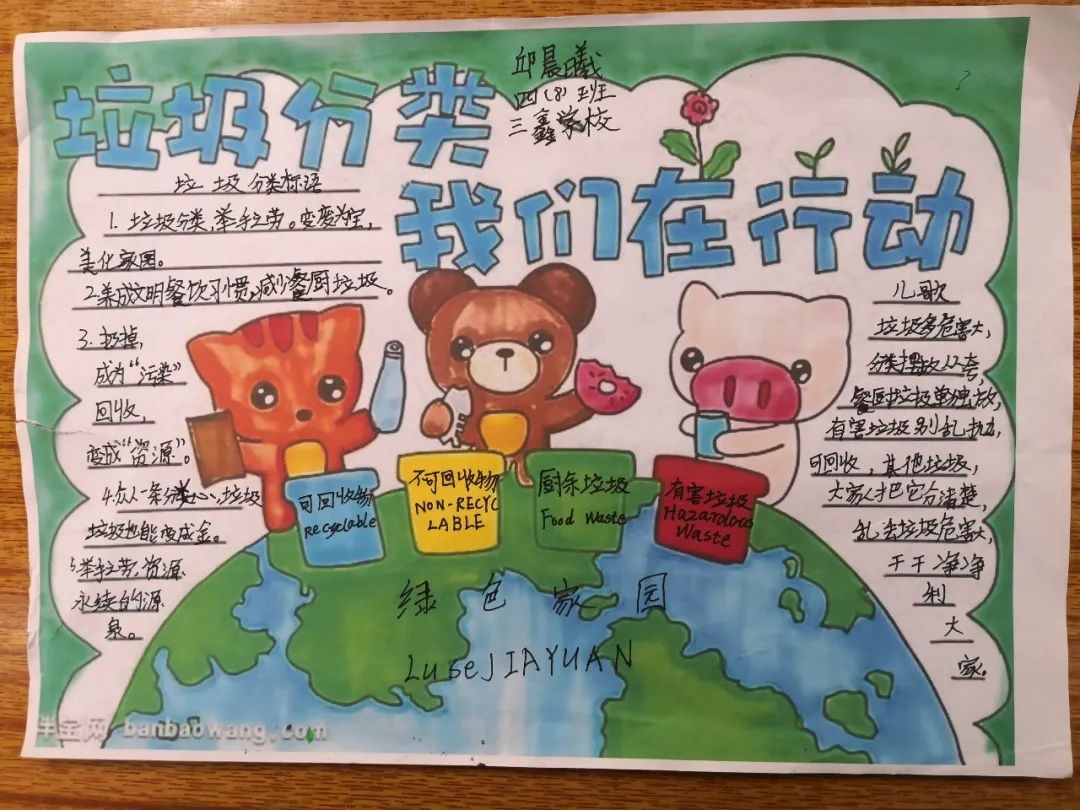 垃圾分类
我们在行动
邱晨曦
四(8)班
三鑫学校
垃圾分类标语
1. 垃圾分类,举手之劳。变废为宝,
美化家园。
2.养成文明餐饮习惯,减少餐厨垃圾。
3. 扔掉
成为“污染”
回收,
变成“资源”。
4.众人一条分类心,垃圾
垃圾也能变成金。
5.举手之劳,资源
永续的源
泉。
儿歌
垃圾多危害大,
分类摆放人人夸
餐厨垃圾单独放,
有害垃圾别乱扔,
可回收,其他垃圾,
大家人把它分清楚,
乱丢垃圾危害大,
干干净净
利
大
家。
可回收物
Recyclable
不可回收物
NON-RECYC
LABLE
厨余垃圾
Food Waste
有害垃圾
Hazardous
Waste
绿色家园
LuseJIAYUAN
banbaowang.com